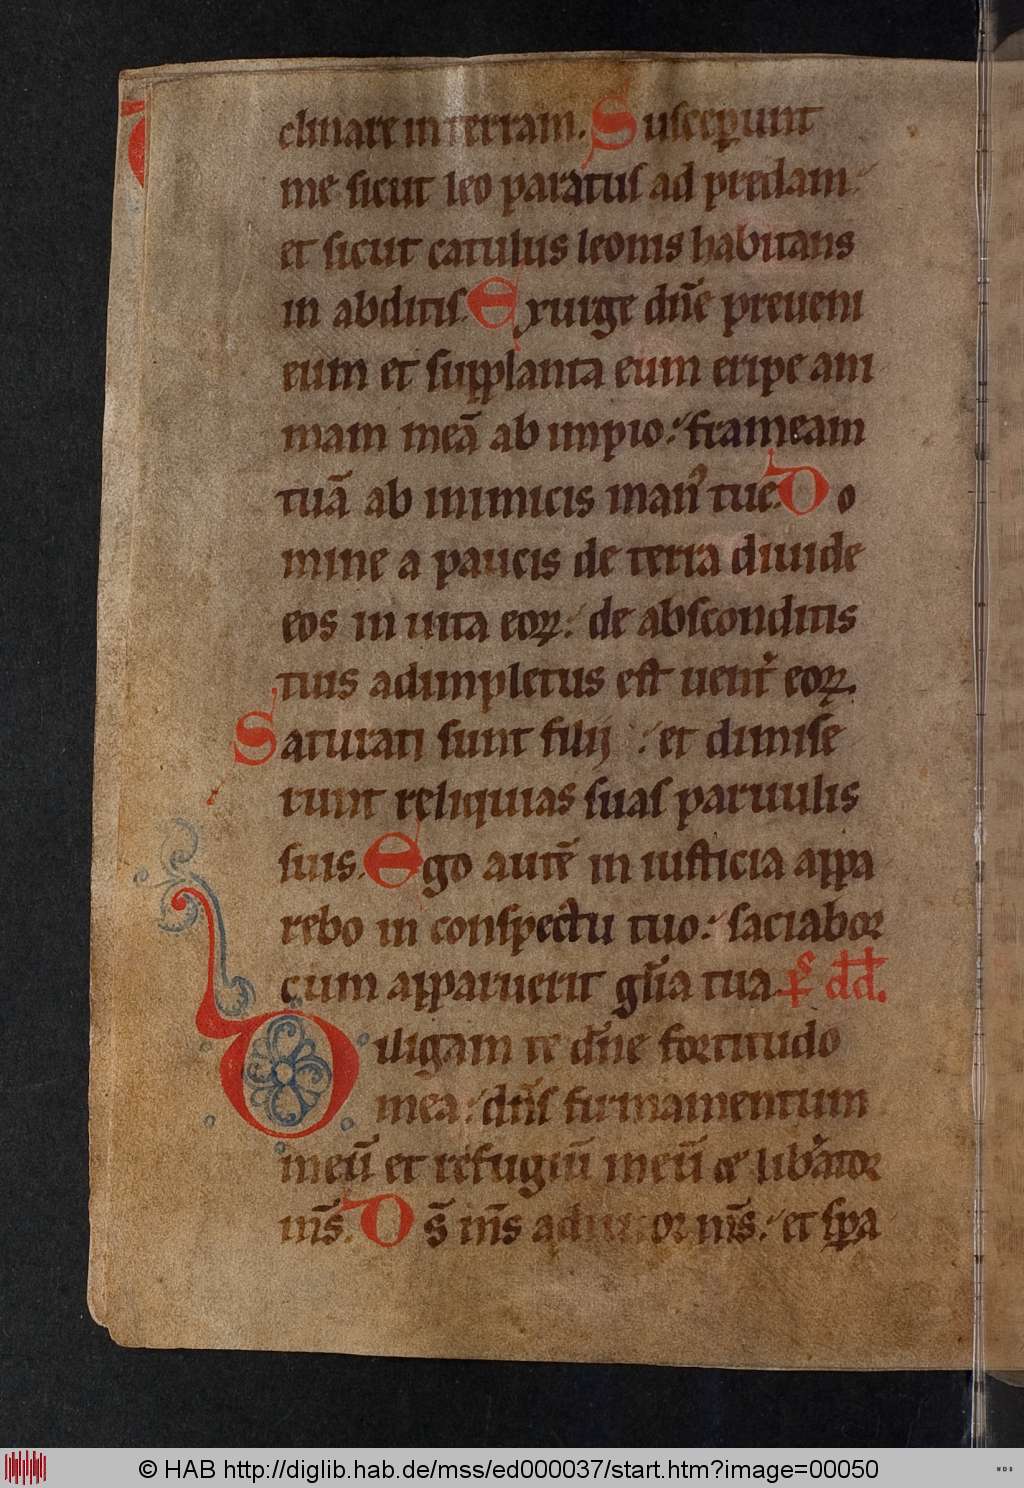 clinare in terram. Susceperunt
me sicut leo paratus ad predam
et sicut catulus leonis habitans
in abditis. Exurge dn̄e preueni
eum et supplanta eum eripe ani
mam meā ab impio: frameam
tuā ab inimicis man᷒ tue. Do
mine a paucis de terra diuide
eos in uita eoꝝ: de absconditis
tuis adimpletus est uent̾ eoꝝ.
Saturati sunt filij : et dimise
runt reliquias suas paruulis
suis. Ego autē in iusticia appa
rebo in conspectu tuo: saciabor
cum apparuerit gl̄ia tua. p̄s dd.
Diligam te dn̄e fortitudo
mea: dn̄s firmamentum
meū et refugiū meū et lib̾ator
m̄s. Ds̄ m̄s adiutor m̄s: et sꝑa
© HAB http://diglib.hab.de/mss/ed000037/start.htm?image=00050